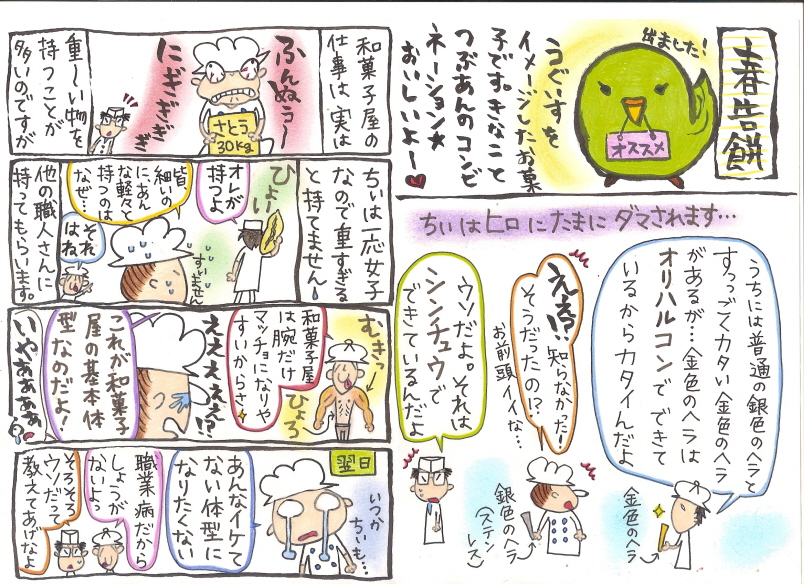 春告餅
出ました！
オススメ
うぐいすを
イメージしたお菓
子です。きなこと
つぶあんのコンビ
ネーション★
おいしいよー♥
ちぃはヒロにたまにダマされます…
うちには普通の銀色のヘラと
すっっごくカタい金色のヘラ
があるが…金色のヘラは
オリハルコンでできて
いるからカタイんだよ
金色のヘラ
えぇ!?知らなかった！
そうだったの!?
お前頭イイな…
銀色のヘラ
(ステンレス)
ウソだよ。それは
シンチュウで
できているんだよ
和菓子屋の
仕事は、実は
ふんぬぅー
さとう
30kg
にぎぎぎぎ
重〜い物を
持つことが
多いのですが
ちぃは一応女子
なので重すぎる
と持てません！
ひょーい
オレが
持つよ
すいません
皆
細いの
に、あん
な軽々と
持つのは
なぜ…
それ
はね
他の職人さんに
持ってもらいます。
むきっ
ひょろ
和菓子屋
は腕だけ
マッチョになりや
すいからさ
ええええぇ!?
これが和菓子
屋の基本体
型なのだよ！
いやあぁぁぁ
翌日
いつか
ちぃも…
あんなイケて
ない体型に
なりたくない
職業病だから
しょうが
ないよ
そろそろ
ウソだって
教えてあげなよ